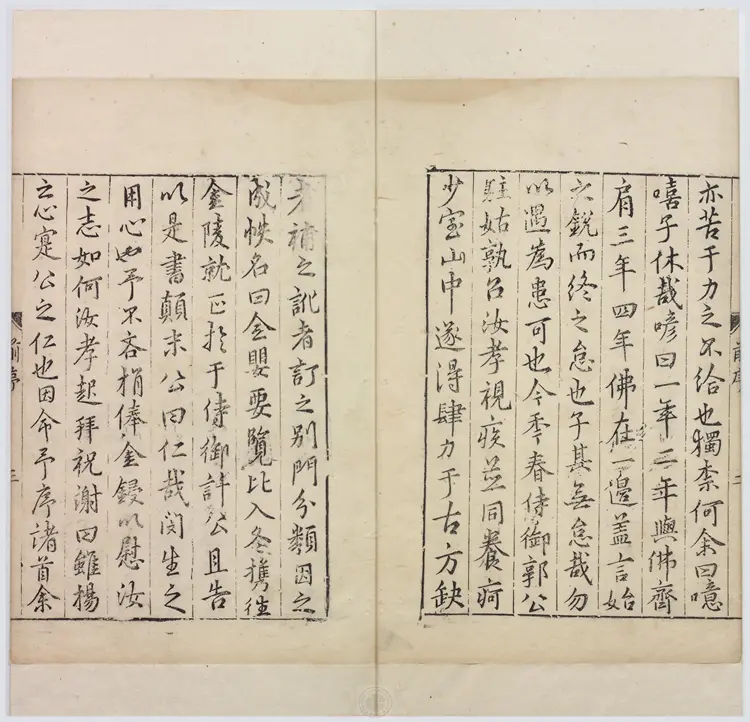 亦苦于力之不給也獨柰何余曰噫
嘻子休哉諺曰一年二年與佛齊
肩三年四年佛在一邊盖言始
之銳而終之怠也子其無怠哉勿
以遇為患可也今季春侍御郭公
駐姑孰召汝孝視疾並同養疴
少室山中遂得肆力于古方缺
者補之訛者訂之別門分類因之
成帙名曰全嬰要覽比入冬携往
金陵就正於于侍御許公且告
以是書顛末公曰仁哉閔生之
用心也予不吝捐俸金鋟以慰汝
之志如何汝孝起拜祝謝曰雖揚
之心寔公之仁也因命予序諸首余
前序
三
前序
二